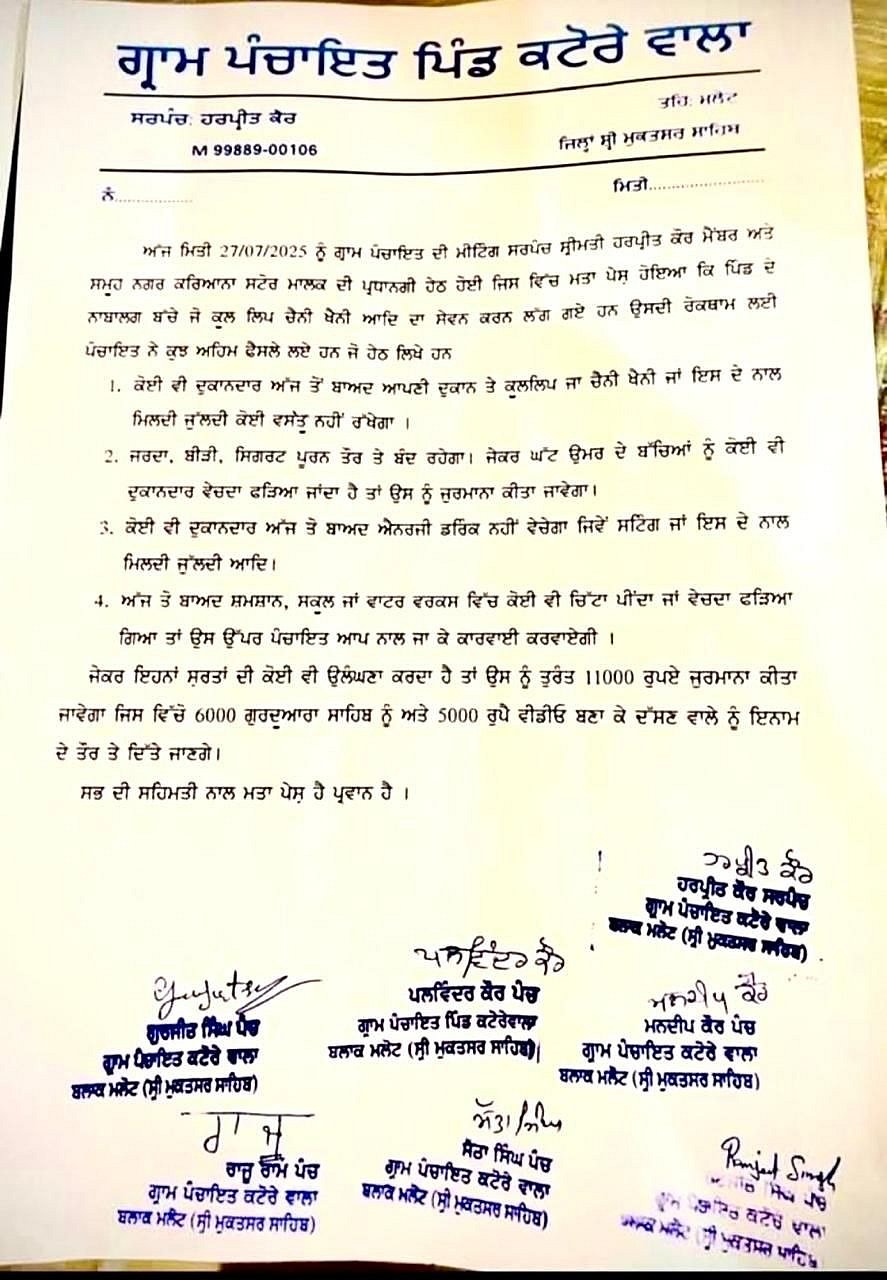 ਗ੍ਰਾਮ ਪੰਚਾਇਤ ਪਿੰਡ ਕਟੋਰੇ ਵਾਲਾ
ਸਰਪੰਚ: ਹਰਪ੍ਰੀਤ ਕੌਰ
M 99889-00106
ਤਹਿ: ਮਲੋਟ
ਜਿਲ੍ਹਾਂ ਸ੍ਰੀ ਮੁਕਤਸਰ ਸਾਹਿਬ
ਨੰ.................
ਮਿਤੀ.........................
ਅੱਜ ਮਿਤੀ 27/07/2025 ਨੂੰ ਗ੍ਰਾਮ ਪੰਚਾਇਤ ਦੀ ਮੀਟਿੰਗ ਸਰਪੰਚ ਸ੍ਰੀਮਤੀ ਹਰਪ੍ਰੀਤ ਕੌਰ ਮੈਂਬਰ ਅਤੇ
ਸਮੂਹ ਨਗਰ ਕਰਿਆਨਾ ਸਟੋਰ ਮਾਲਕ ਦੀ ਪ੍ਰਧਾਨਗੀ ਹੇਠ ਹੋਈ ਜਿਸ ਵਿੱਚ ਮਤਾ ਪੇਸ਼ ਹੋਇਆ ਕਿ ਪਿੰਡ ਦੇ
ਨਾਬਾਲਗ ਬੱਚੇ ਜੋ ਕੂਲ ਲਿਪ ਚੈਨੀ ਖੈਨੀ ਆਦਿ ਦਾ ਸੇਵਨ ਕਰਨ ਲੱਗ ਗਏ ਹਨ ਉਸਦੀ ਰੋਕਥਾਮ ਲਈ
ਪੰਚਾਇਤ ਨੇ ਕੁਝ ਅਹਿਮ ਫੈਸਲੇ ਲਏ ਹਨ ਜੋ ਹੇਠ ਲਿਖੇ ਹਨ
1. ਕੋਈ ਵੀ ਦੁਕਾਨਦਾਰ ਅੱਜ ਤੋਂ ਬਾਅਦ ਆਪਣੀ ਦੁਕਾਨ ਤੇ ਕੂਲਲਿਪ ਜਾ ਚੈਨੀ ਖੈਨੀ ਜਾਂ ਇਸ ਦੇ ਨਾਲ
ਮਿਲਦੀ ਜੁੱਲਦੀ ਕੋਈ ਵਸਤੂ ਨਹੀਂ ਰੱਖੇਗਾ ।
2. ਜਰਦਾ, ਬੀੜੀ, ਸਿਗਰਟ ਪੂਰਨ ਤੌਰ ਤੇ ਬੰਦ ਰਹੇਗਾ। ਜੇਕਰ ਘੱਟ ਉਮਰ ਦੇ ਬੱਚਿਆਂ ਨੂੰ ਕੋਈ ਵੀ
ਦੁਕਾਨਦਾਰ ਵੇਚਦਾ ਫੜਿਆ ਜਾਂਦਾ ਹੈ ਤਾਂ ਉਸ ਨੂੰ ਜੁਰਮਾਨਾ ਕੀਤਾ ਜਾਵੇਗਾ।
3. ਕੋਈ ਵੀ ਦੁਕਾਨਦਾਰ ਅੱਜ ਤੋ ਬਾਅਦ ਐਨਰਜੀ ਡਰਿੰਕ ਨਹੀਂ ਵੇਚੇਗਾ ਜਿਵੇਂ ਸਟਿੰਗ ਜਾਂ ਇਸ ਦੇ ਨਾਲ
ਮਿਲਦੀ ਜੁੱਲਦੀ ਆਦਿ।
4. ਅੱਜ ਤੋ ਬਾਅਦ ਸ਼ਮਸ਼ਾਨ, ਸਕੂਲ ਜਾਂ ਵਾਟਰ ਵਰਕਸ ਵਿੱਚ ਕੋਈ ਵੀ ਚਿੱਟਾ ਪੀਂਦਾ ਜਾਂ ਵੇਚਦਾ ਫੜਿਆ
ਗਿਆ ਤਾਂ ਉਸ ਉੱਪਰ ਪੰਚਾਇਤ ਆਪ ਨਾਲ ਜਾ ਕੇ ਕਾਰਵਾਈ ਕਰਵਾਏਗੀ ।
ਜੇਕਰ ਇਹਨਾਂ ਸ਼ੁਰਤਾਂ ਦੀ ਕੋਈ ਵੀ ਉਲੰਘਣਾ ਕਰਦਾ ਹੈ ਤਾਂ ਉਸ ਨੂੰ ਤੁਰੰਤ 11000 ਰੁਪਏ ਜੁਰਮਾਨਾ ਕੀਤਾ
ਜਾਵੇਗਾ ਜਿਸ ਵਿੱਚੋ 6000 ਗੁਰਦੁਆਰਾ ਸਾਹਿਬ ਨੂੰ ਅਤੇ 5000 ਰੁਪੈ ਵੀਡੀਓ ਬਣਾ ਕੇ ਦੱਸਣ ਵਾਲੇ ਨੂੰ ਇਨਾਮ
ਦੇ ਤੌਰ ਤੇ ਦਿੱਤੇ ਜਾਣਗੇ।
ਸਭ ਦੀ ਸਹਿਮਤੀ ਨਾਲ ਮਤਾ ਪੇਸ਼ ਹੈ ਪ੍ਰਵਾਨ ਹੈ ।
ਹਰਪ੍ਰੀਤ ਕੌਰ
ਹਰਪ੍ਰੀਤ ਕੌਰ ਸਰਪੰਚ
ਗ੍ਰਾਮ ਪੰਚਾਇਤ ਕਟੋਰੇ ਵਾਲਾ
ਬਲਾਕ ਮਲੋਟ (ਸ੍ਰੀ ਮੁਕਤਸਰ ਸਾਹਿਬ)
ਗੁਰਜੀਤ ਸਿੰਘ ਪੰਚ
ਗ੍ਰਾਮ ਪੰਚਾਇਤ ਕਟੋਰੇ ਵਾਲਾ
ਬਲਾਕ ਮਲੋਟ (ਸ੍ਰੀ ਮੁਕਤਸਰ ਸਾਹਿਬ)
ਪਲਵਿੰਦਰ ਕੌਰ
ਪਲਵਿੰਦਰ ਕੌਰ ਪੰਚ
ਗ੍ਰਾਮ ਪੰਚਾਇਤ ਪਿੰਡ ਕਟੋਰੇਵਾਲਾ
ਬਲਾਕ ਮਲੋਟ (ਸ੍ਰੀ ਮੁਕਤਸਰ ਸਾਹਿਬ)
ਮਨਦੀਪ ਕੌਰ
ਮਨਦੀਪ ਕੌਰ ਪੰਚ
ਗ੍ਰਾਮ ਪੰਚਾਇਤ ਕਟੋਰੇ ਵਾਲਾ
ਬਲਾਕ ਮਲੋਟ (ਸ੍ਰੀ ਮੁਕਤਸਰ ਸਾਹਿਬ)
ਰਾਜੂ
ਰਾਜੂ ਰਾਮ ਪੰਚ
ਗ੍ਰਾਮ ਪੰਚਾਇਤ ਕਟੋਰੇ ਵਾਲਾ
ਬਲਾਕ ਮਲੋਟ (ਸ੍ਰੀ ਮੁਕਤਸਰ ਸਾਹਿਬ)
ਸਿੰਘ ਪੰਚ
ਗ੍ਰਾਮ ਪੰਚਾਇਤ ਕਟੋਰੇ ਵਾਲਾ
ਬਲਾਕ ਮਲੋਟ (ਸ੍ਰੀ ਮੁਕਤਸਰ ਸਾਹਿਬ)
Ranjeet Singh
ਸਿੰਘ ਪੰਚ
ਗ੍ਰਾਮ ਪੰਚਾਇਤ ਕਟੋਰੇ ਵਾਲਾ
ਬਲਾਕ ਮਲੋਟ (ਸ੍ਰੀ ਮੁਕਤਸਰ ਸਾਹਿਬ)